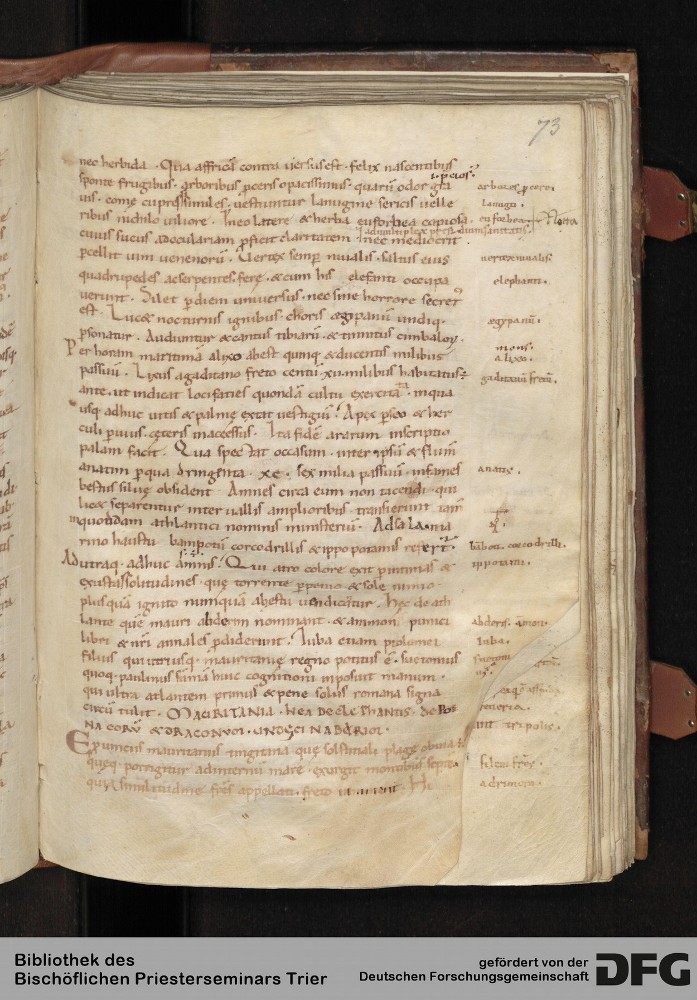 73
nec herbida · Qua affricā contra uersus est · felix nascentibus
sponte frugibus · arboribus p̄ceris opacissimus · quarū odor g̃ia
uis · comę cupressi similes · uestiuntur lanugine sericis uelle
ribus nichilo uiliore · Ineo latere & herba euforbea copiosa ·
cuius sucus adoculariam p̄ficit claritatem nec mediocrit̄
p̄cellit uim uenenorū · Uertex semp̄ niualis · saltus eius
quadrupedes ac serpentes · ferę · & cum his elefanti occupa
uerunt · Silet p̄ diem uniuersus · nec sine horrore secret᾽
est · Lucet nocturnis ignibus · choris ęgipanū undiq ·
p̄sonatur · Audiuntur & cantus tibiarū · & tinnitus cimbaloꝝ ·
Per horam maritimā alyxo abest quinq · & ducentis milibus
passuū · Lyxus agaditano freto centū · xii · milibus habitatus
ante · ut indicat loci facies quondā cultu exercita · inqua
usq adhuc uitis & palmę extat uestigiū · Apex perseo & her
culi peruius · cęteris inaccessus · Ita fidē ararum inscriptio
palam facit · Qua spectat occasum · inter ipsū & flum̄
anatim per quadringenta · xc · sex milia passuū · infames
bestiis siluę obsident · Amnes circa eum non tacendi · qui
licet separentur interuallis amplioribus · transierunt tam̄
inquoddam athlantici nominis ministeriū · Asala ma
rino haustu bambotū corcodrillis & ippopotamis refert᾽
Adutraq · adhuc amnis · Qui atro colore exit p̄ intimas &
exustas solitudines · quę torrente p̄petuo & sole nimio ·
plus quā ignito numquā abestu uendicatur · hęc de ath
lante quē mauri abderim nominant · & ammon punici
libri & nr̄i annales p̄diderunt · Iuba etiam ptolomei
filius qui utriusq · mauritanię regno potitus ē · suetonius
quoq · paulinus sūmā huic cognitioni inposuit manum ·
qui ultra atlantem primus & pene solus romana signa
circū tulit ·
NACORŪ & DRACONVM ·
E prouinciis mauritanis tingitana quę solstitiali plagę obuia ē
quęq porrigitur adinternū mare · exurgit montibus septē ·
qui similitudine fr̄es appellati · freto imminent · Hi
arbores p̄cere ·
Lanugo ·
euforbea · Nota
uertex niualis ·
elephanti ·
ęgypanū ·
mons ·
a lixo ·
gaditanū fretū ·
anatis ·
bābot · corcodrilli ·
ippotami ·
abderis · āmon ·
Iuba ·
Bibliothek des
Bischöflichen Priesterseminars Trier
gefördert von der
Deutschen Forschungsgemeinschaft
DFG